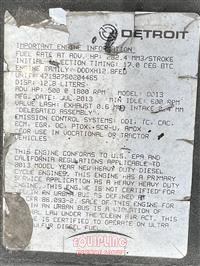 DETROIT
IMPORTANT ENGINE INFORMATION
FUEL RATE AT ADV. HP: 282.4 MM3/STROKE
INITIAL INJECTION TIMING: 17.0 DEG BTC
ENGINE FAMILY: DDDXH12.8FED
UNIT: 471927S0204465
DISP: 12.8 LITERS
ADV HP: 500 @ 1800 RPM MODEL: DD13
MFG DATE: JUL 2013 MIN IDLE: 600 RPM
VALVE LASH: EXHAUST 0.6 MM INTAKE 0.4 MM
"DELEGATED ASSEMBLY"
EMISSION CONTROL SYSTEMS: DDI, TC, CAC,
ECM, EGR, OC, PTOX, SCR-U, AMOX
FOR USE IN VOCATIONAL OR TRACTOR
VEHICLES
THIS ENGINE CONFORMS TO U.S. EPA AND
CALIFORNIA REGULATIONS APPLICABLE TO
2013 MODEL YEAR NEW HEAVY DUTY DIESEL
CYCLE ENGINES. THIS ENGINE HAS A PRIMARY
SERVICE APPLICATION AS A HEAVY HEAVY DUTY
ENGINE. THIS ENGINE IS NOT CERTIFIED FOR
USE IN AN URBAN BUS AS DEFINED AT
86.093-2. SALE OF THIS ENGINE FOR
USE IN AN URBAN BUS IS A VIOLATION OF
FEDERAL LAW UNDER THE CLEAN AIR ACT. THIS
ENGINE IS CERTIFIED TO OPERATE ON ULTRA
LOW SULFUR DIESEL FUEL.
EQUIPLINC